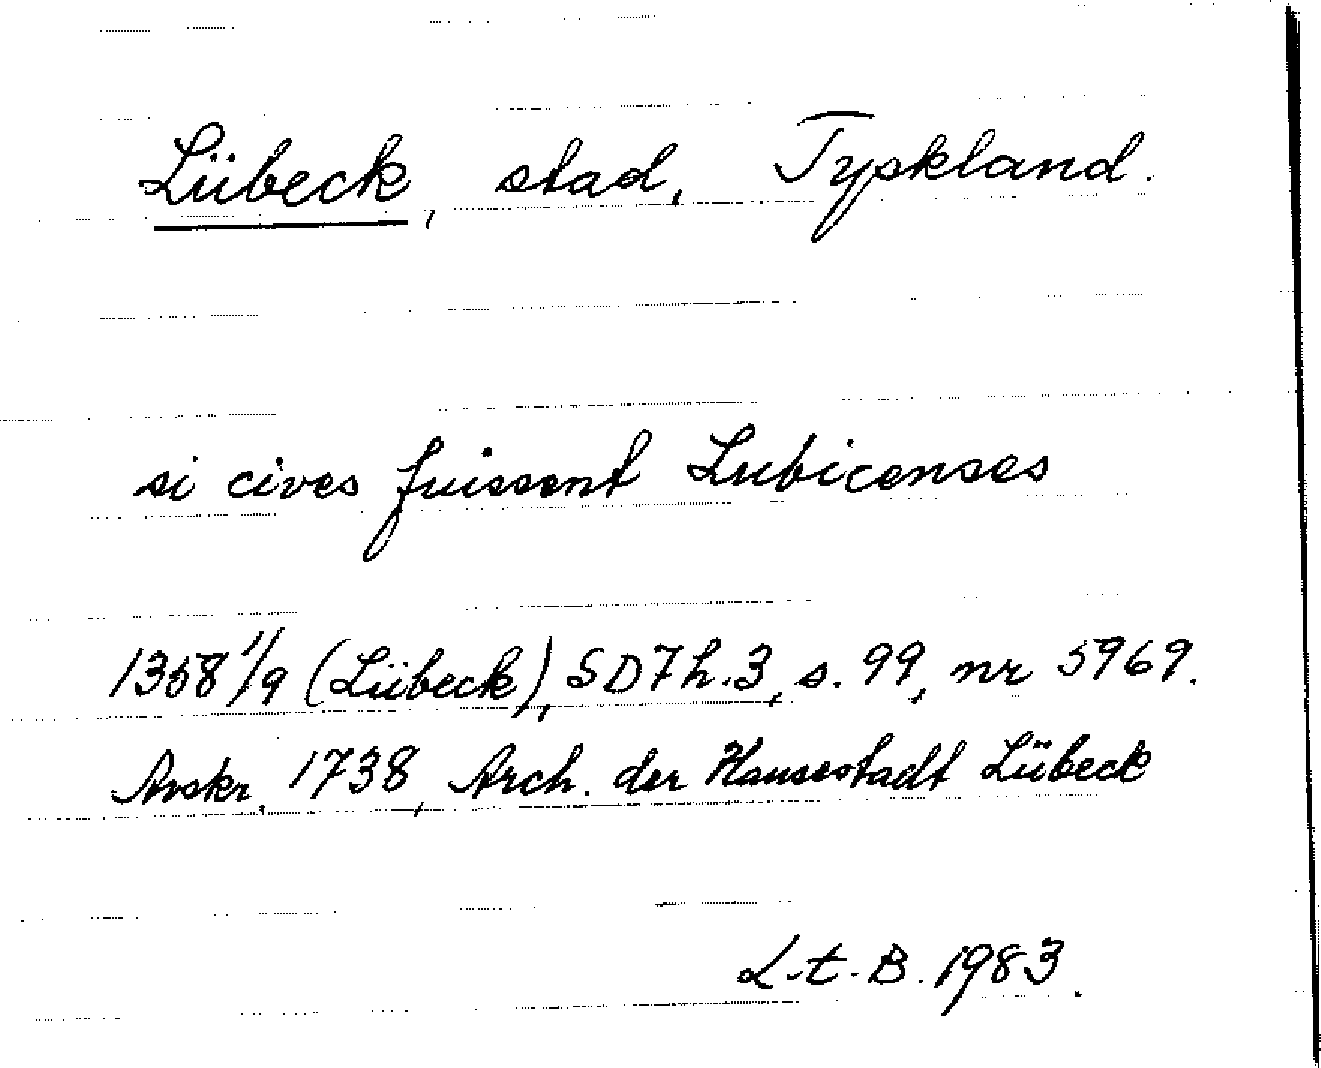 Lübeck, stad, Tyskland.
si cives fuissent Lubicenses
1358 1/9 (Lübeck), SD7h.3, s. 99, nr 5969.
Avskr. 1738, Arch. der Hansestadt Lübeck
L.t.B. 1983.